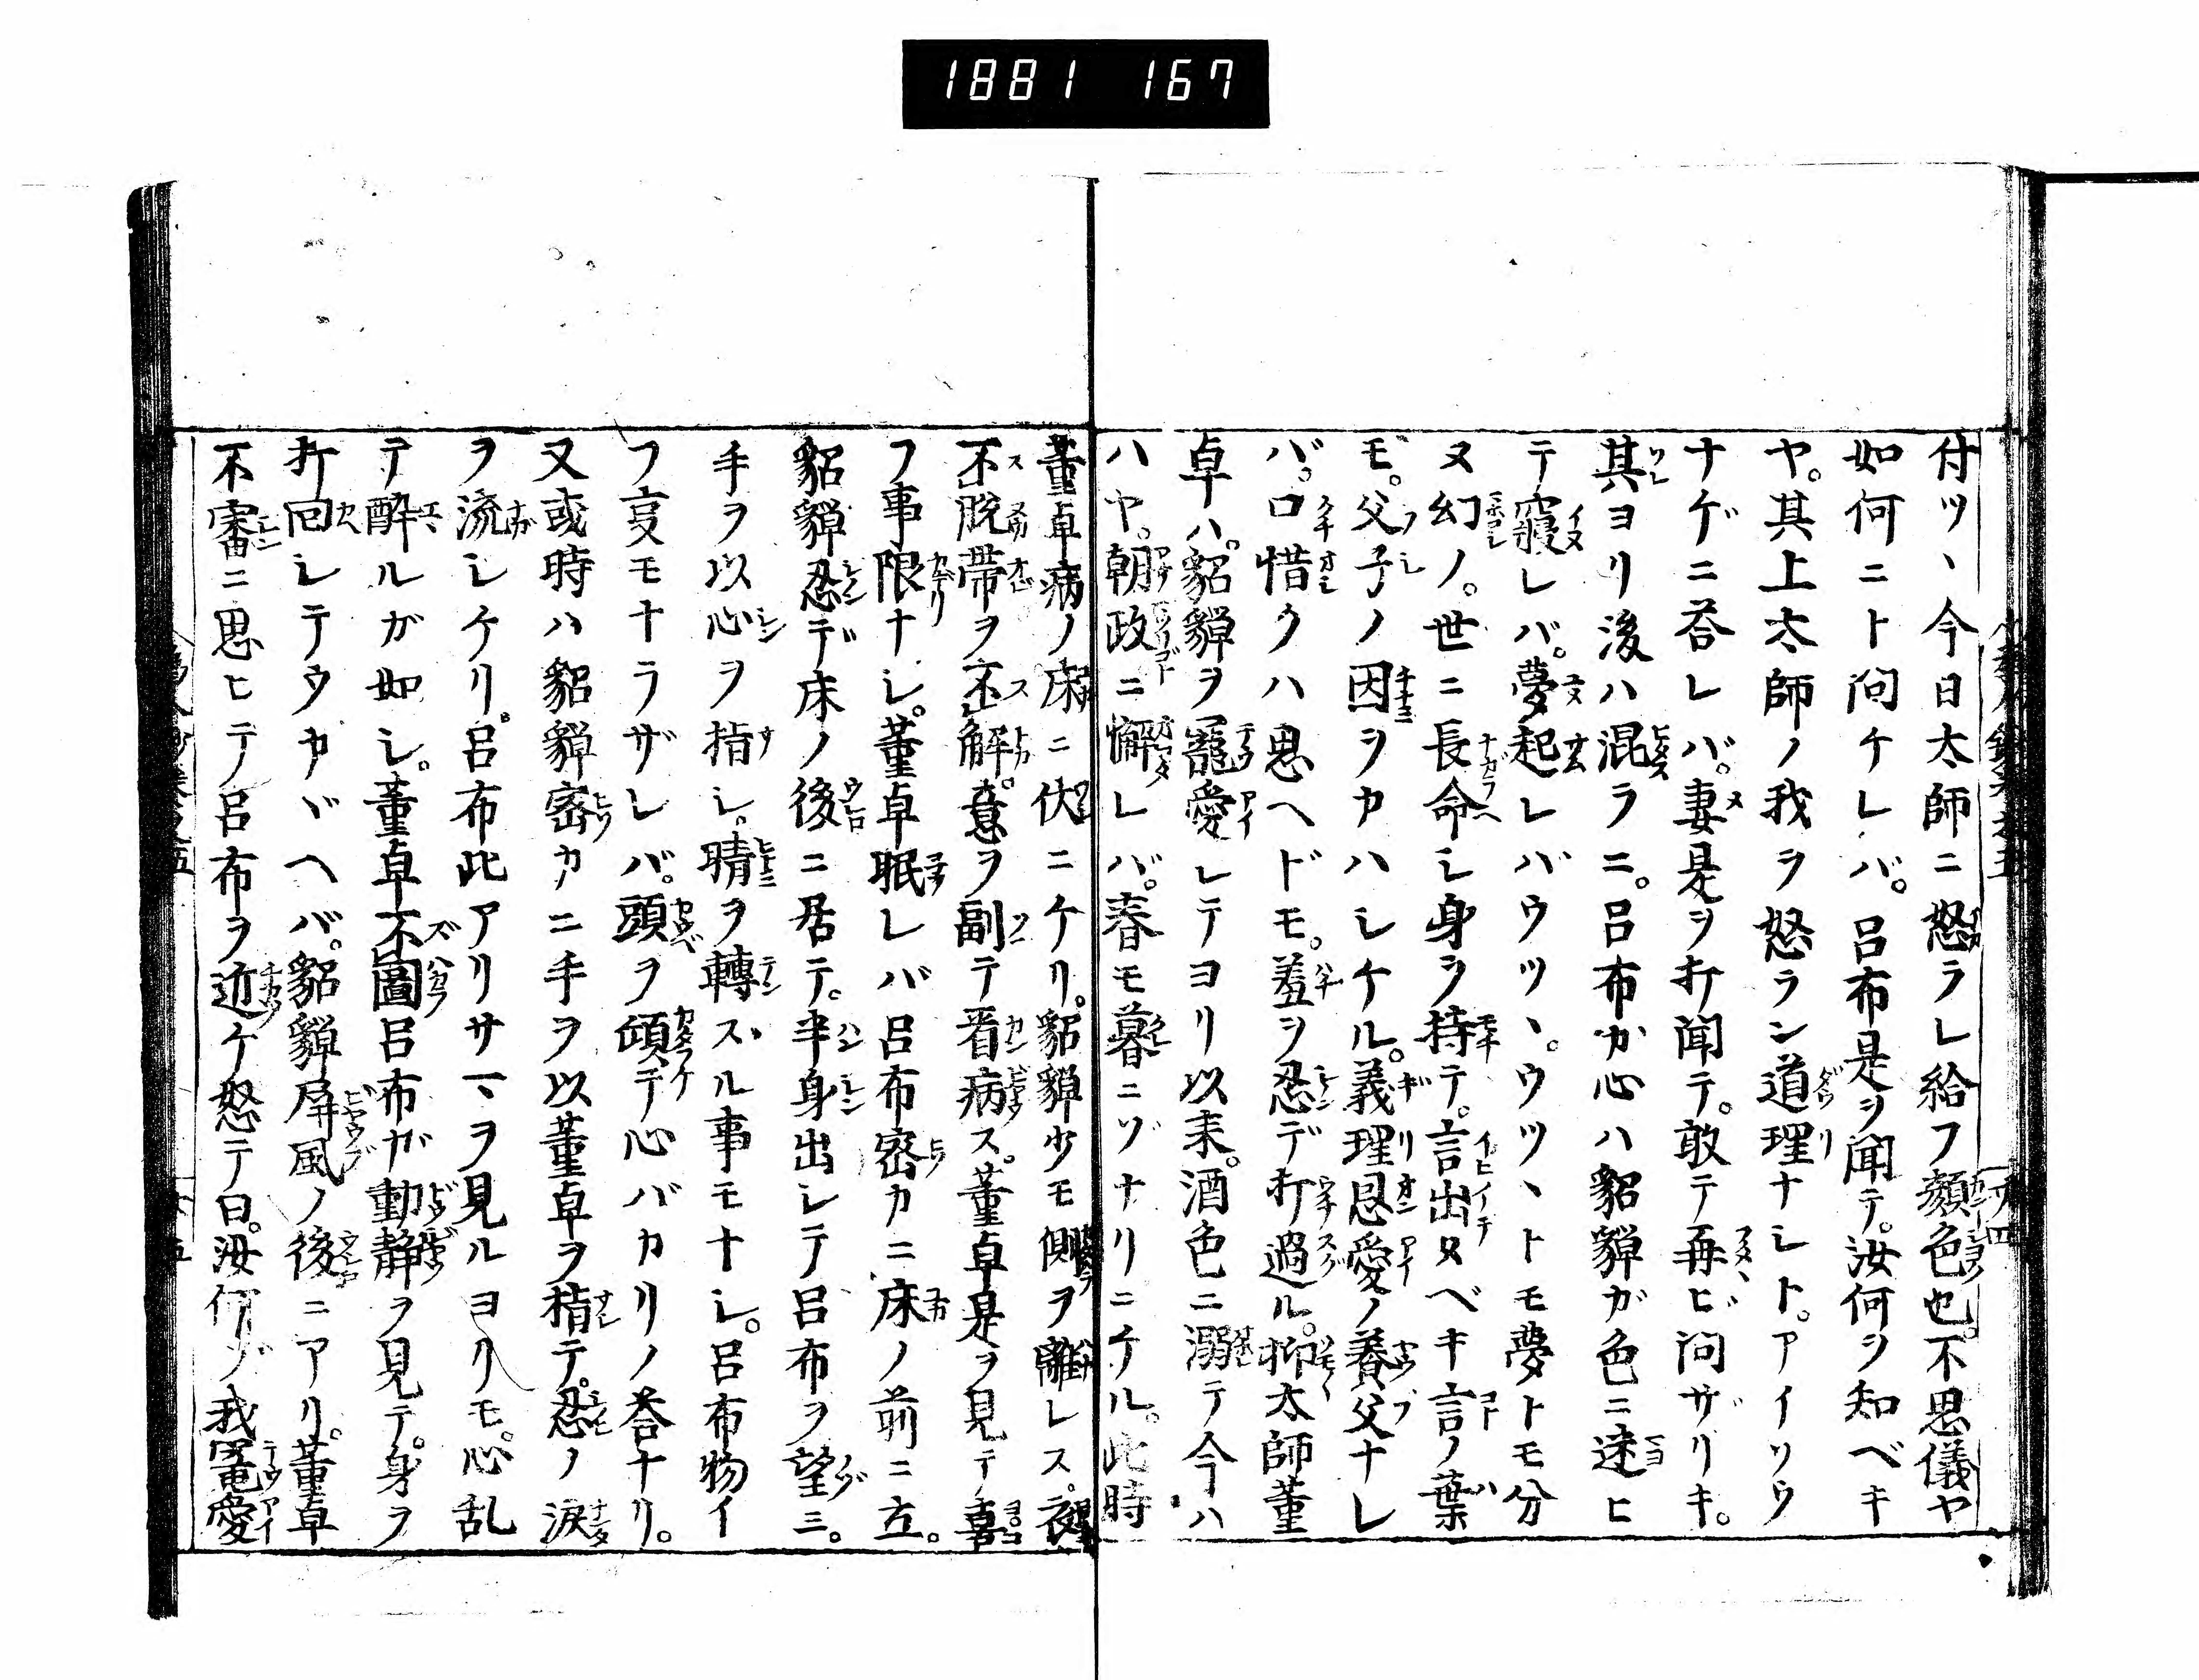 1881 167
付ツヽ今日太師ニ怒ラレ給フ顔色也。不思儀ヤ
如何ニト問ケレバ。呂布是ヲ聞テ。汝何ヲ知ベキ
ヤ。其上太師ノ我ヲ怒ラン道理ナシト。アイソウ
ナゲニ荅レバ。妻是ヲ打聞テ。敢テ再ビ問ザリキ。
其ヨリ後ハ混ラニ。呂布カ心ハ貂蟬ガ色ニ迷ヒ
テ寢レバ。夢起レバウツヽ。ウツヽトモ夢トモ分
ヌ幻ノ。世ニ長命シ身ヲ持テ。言出ヌベキ言ノ葉
モ。父子ノ因ヲカハシケル。義理恩愛ノ養父ナレ
バ。口惜クハ思ヘドモ。羞ヲ忍デ打過ル。抑太師董
卓ハ。貂蟬ヲ寵愛シテヨリ以来。酒色ニ溺テ今ハ
ハヤ。朝政ニ懈レバ。春モ暮ニゾナリニケル。此時
董卓病ノ床ニ伏ニケリ。貂蟬少モ側ヲ離レス。夜
不脱帯ヲ不解。意ヲ副テ看病ス。董卓是ヲ見テ喜
フ事限ナシ。董卓眠レバ呂布密カニ床ノ前ニ立。
貂蟬忍デ床ノ後ニ居テ。半身出シテ呂布ヲ望ミ。
手ヲ以心ヲ指シ。睛ヲ轉ズル事モナシ。呂布物イ
フ㕝モナラザレバ。頭ヲ傾テ心バカリノ荅ナリ。
又或時ハ貂蟬密カニ手ヲ以董卓ヲ指テ。忍ノ涙
ヲ流シケリ。呂布此アリサマヲ見ルヨリモ。心乱
テ酔ルガ如シ。董卓不圖呂布ガ動静ヲ見テ。身ヲ
打回シテウカヾヘバ。貂蟬屏風ノ後ニアリ。董卓
不審ニ思ヒテ呂布ヲ近ケ怒テ曰。汝何ゾ我寵愛